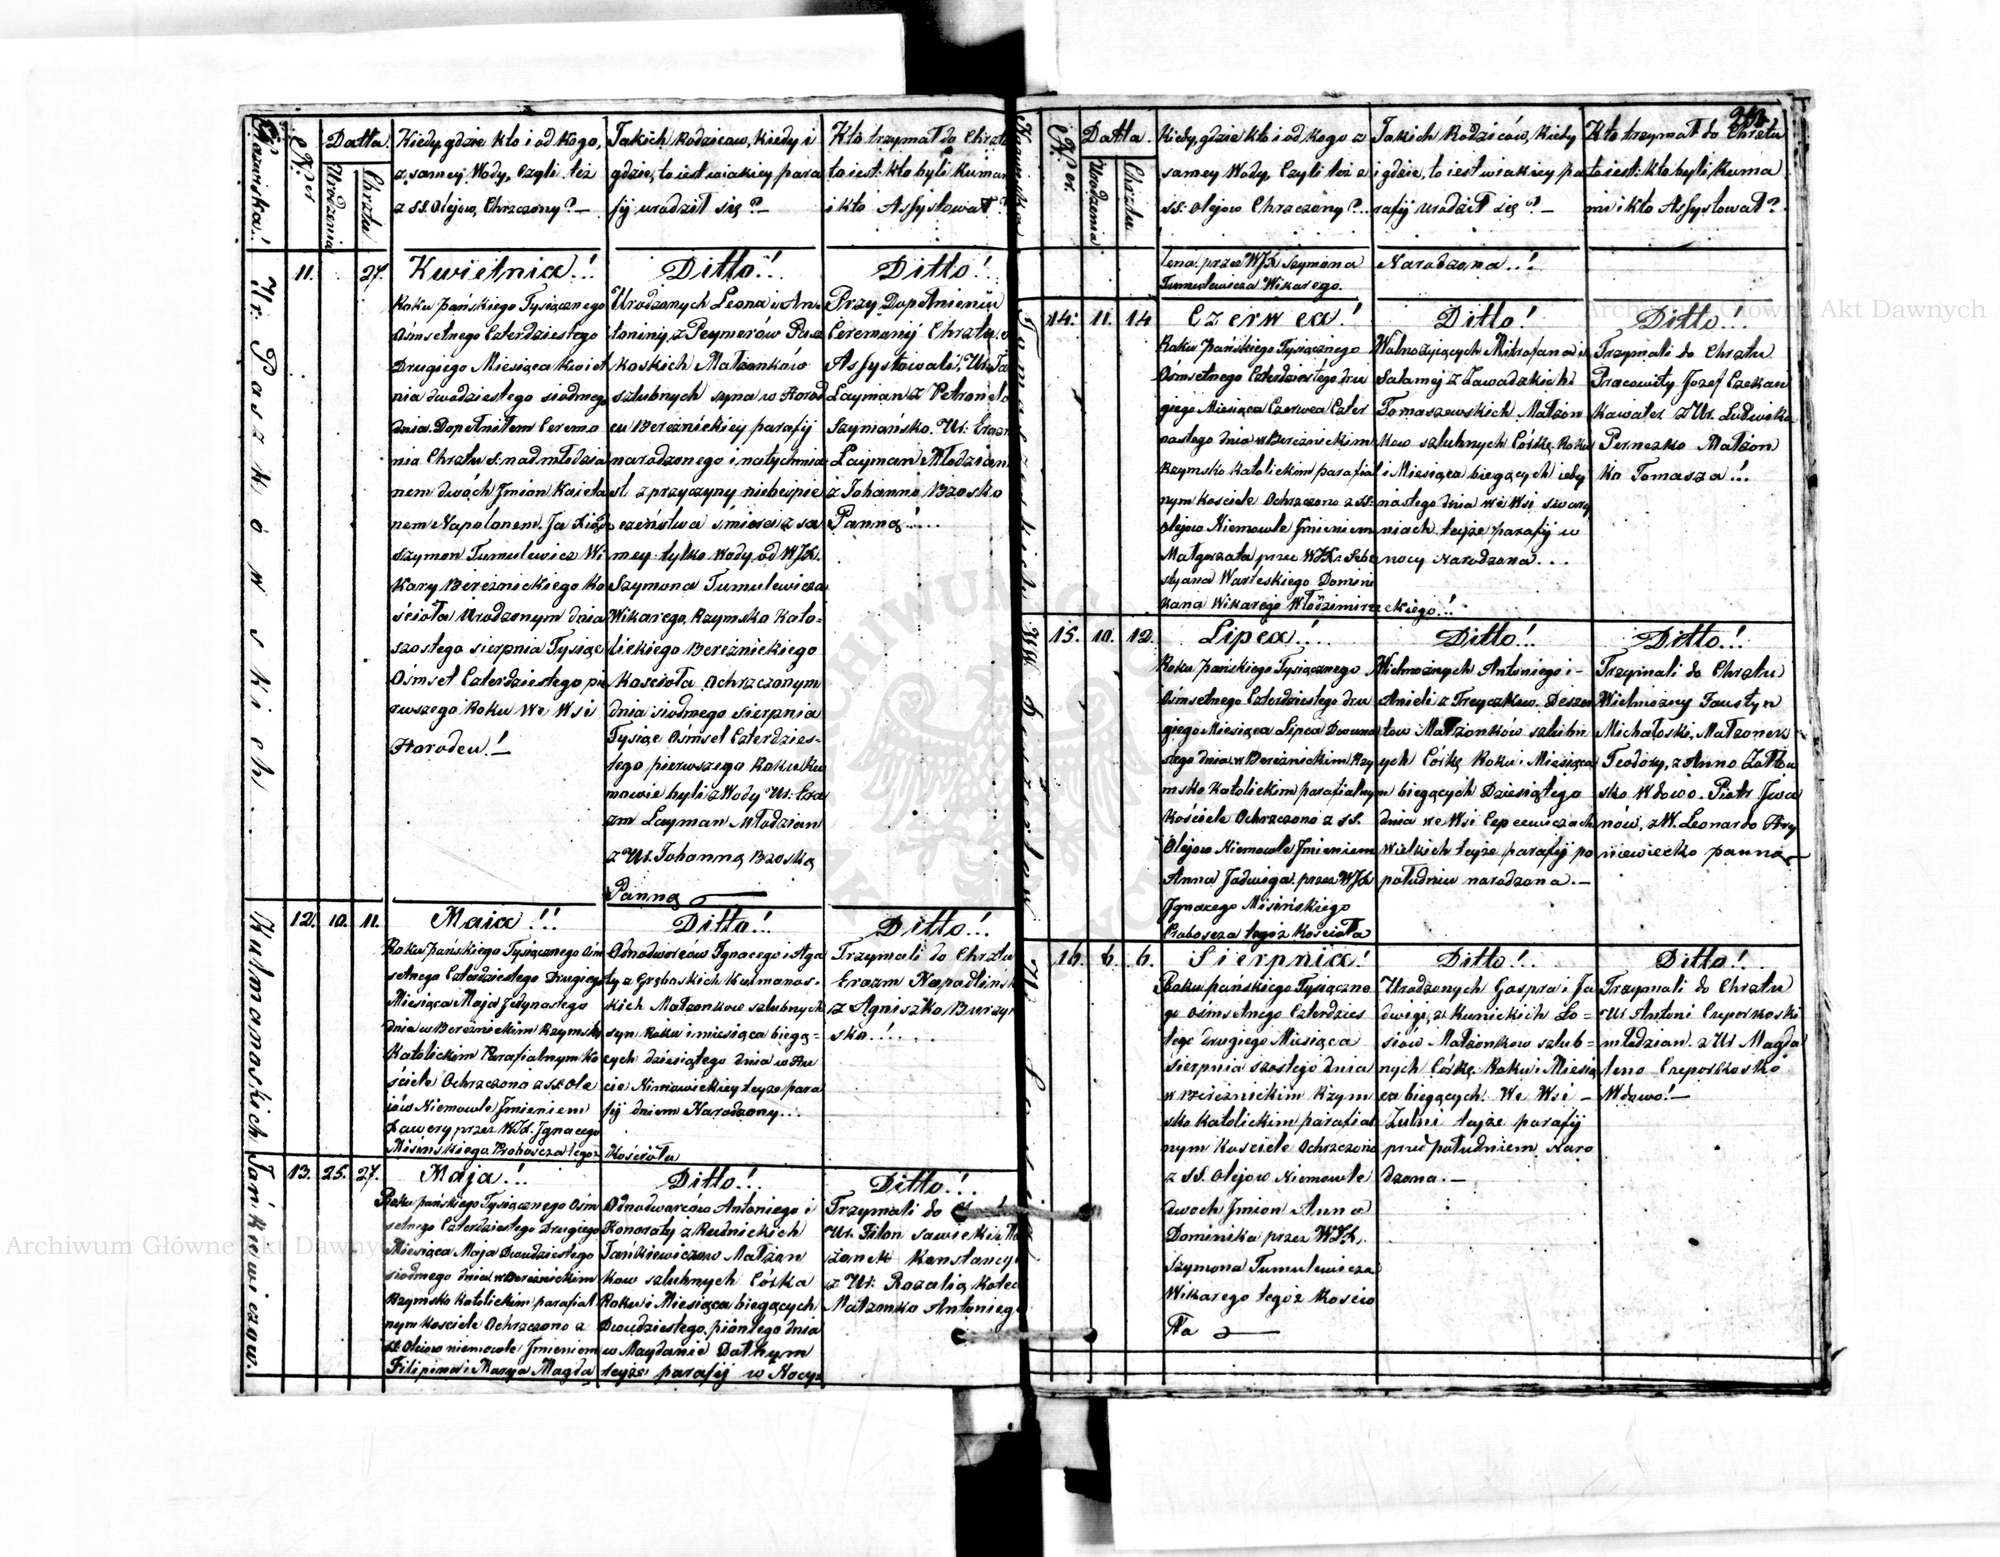 Nazwiska!
N. er
Datta.
Urodzenia
Chrztu
Kiedy, gdzie kto i od kogo,
z samey Wody, Czyli też
z SS. Olejow, Chrzczony? —
Jakich Rodzicow, Kiedy i
gdzie, to iest w iakiey para
fij urodził się? —
Kto trzymał do Chrztu
to iest: kto byli Kumami
i kto Assystował?
Ur: Paszkówskich.
11.
27.
Kwietnia!!
Roku Pańskiego Tysiącznego
Osmsetnego Czterdziestego
Drugiego Miesiąca Kwiet
nia dwódziestego siódmego
dnia. Dopełniłem Ceremo
nia Chrztu S: nad młodzia
nem dwóch Jmion Kaieta
nem Napolonem. Ja Xiądz
Szymon Tumulewicz Wi
kary Bereznickiego Ko
ścioła Urodzonym dnia
szostego sierpnia Tysiąc
Osmset Czterdziestego pie
rwszego Roku We Wsi
Horodcu! —
Ditto!!
Urodzonych Leona i An
toniny z Peymerów Pasz
koskich Małżonków
szlubnych syna w Horod
cu Bereźnickiey parafij
narodzonego i natychmia
st z przyczyny niebespie
czeństwa śmierci z sa
mey tylko Wody od WJX.
Szymona Tumulewicza
Wikarego Rzymsko Kato-
lickiego Bereźnickiego
Kościoła Ochrzczonym
dnia siodmego Sierpnia
Tysiąc Osmset Czterdzies-
tego pierwszego Roku Ku
mowie byli z Wody Ur: Era
zm Layman Młodzian
z Ur. Johanną Brzoską
Panną
Ditto!
Przy Dopełnieniu
Ceremonij Chrztu S.
Assystowali, Ur:
Layman z Petronelo
Szymańsko. Ur: Erazm
Layman Młodzian
z Johanno Brzosko
Panną!...
Kulmanoskich
12.
10.
11.
Maia!!!
Roku Pańskiego Tysiącznego Osm
setnego Czterdziestego Drugiego
Miesiąca Maja Jedynastego
dnia w Bereznickim Rzymsko
Katolickim Parafialnym Ko
ściele Ochrzczono z SS. Ole
iów Niemowle Jmieniem
Xawery przez WJX. Jgnacego
Misińskiego Proboszcza tegoż
Ditto!
Odnodworców Jgnacego i Aga
ty z Grzboskich Kulmanos-
kich Małżonkow szlubnych
syn Roku i miesiąca biegą-
cych dziesiątego dnia w Hu
cie Nimowickiey teyże para
fij dniem Narodzony...
Kościoła
Ditto!!
Trzymali do Chrztu
Erazm
z Agniszko Burzyń
sko!!....
Jańkiewiczow.
13.
25.
27.
Maja!!
Roku Pańskiego Tysiącznego Osm
setnego Czterdziestego Drugiego
Miesiąca Maja Dwudziestego
siodmego dnia w Bereznickim
Rzymsko Katolickim parafial
nym Kościele Ochrzczono z
SS. Olejow niemowle Jmieniem
Filipina i Marya Magda
Ditto!!
Odnodwarców Antoniego i
Honoraty z Rudnickich
Jańkiewiczow Małżon
kow szlubnych Córka
Roku i Miesiąca biegących
Dwudziestego piontego dnia
w Maydanie Dolnym
teyże parafij w Nocy
Ditto!!
Trzymali do
Ur. Filon Sawicki
żonek Konstancyi
z Ur: Rozalią
Małżonko Antoniego
N. er.
Datta.
Urodzenia
Chrztu
Kiedy, gdzie kto i od kogo z
samey Wody, Czyli też z
SS: olejow Chrzczony?..
Jakich Rodziców, Kiedy
i gdzie, to iest w iakiey pa
rafij urodził się? —
Kto trzymał do Chrztu
to iest: kto byli Kuma
mi i kto Assystował?
lena przez WJX Szymona
Tumulewicza Wikarego.
Narodzona..!
Tomaszeskich
14.
11.
14
Czerwca!
Roku Pańskiego Tysiącznego
Osmsetnego Czterdziestego dru
giego Miesiąca Czerwca Czter
nastego dnia w Bereznickim
Rzymsko Katolickim parafial
nym Kościele Ochrzczono z SS.
Olejow Niemowle Jmieniem
Małgorzata przez WJX. Seba
styana Warłeskiego Domini
kana Wikarego Włodzimirzeckiego!!
Ditto!
Wolnożyiących Mitrofana i
Salamej z Zawadzkich
Tomaszewskich Małżon
kow szlubnych Córkę Roku
i Miesiąca biegących iedy
nastego dnia we Wsi
teyże parafij w
nocy Narodzona...
Ditto!..
Trzymali do Chrztu
Pracowity Jozef Czekan
Kawaler z Ur. Ludwiką
Perneszko Małżon
ko Tomasza!!..
15.
10.
12.
Lipca!..
Roku Pańskiego Tysiącznego
Osmsetnego Czterdziestego dru
giego Miesiąca Lipca Dwuna
stego dnia w Bereźnickim Rzy
msko Katolickim parafialnym
Kościele Ochrzczono z SS.
Olejow Niemowle Jmieniem
Anna Jadwiga przez WJX
Jgnacego Misińskiego
Proboszcza tegoż Kościoła
Ditto!!
Wielmożnych Antoniego i -
Anieli z
Małżonków szlubn
ych Córkę Roku i Miesiąca
biegących Dziesiątego
dnia we Wsi Cepcewiczach
Wielkich teyże parafij po
południu narodzona. —
Ditto!
Trzymali do Chrztu
Wielmożny Faustyn
Michałoski, Małżonek
Teodory, z Anno
sko Wdowo. Piotr Jwa
nów, z W. Leonardo Hry
niewiecko panno
16.
6.
6.
Sierpnia!
Roku Pańskiego Tysiączne
go Osmsetnego Czterdzies
tego drugiego Miesiąca
Sierpnia szostego dnia
w Bereznickim Rzym
sko Katolickim parafial
nym Kościele Ochrzczono
z SS. Olejow Niemowle
dwoch Jmion Anna
Dominika przez WJX.
Szymona Tumulewicza
Wikarego tegoż Koscio
ła
Ditto!!..
Urodzonych Gaspra i Ja
dwigi z Kunickich Lo-
siów Małżonkow szlub-
nych Córkę Roku i Miesią
ca biegących. We Wsi -
Zulni teyże parafij
przed południem Naro
dzona. —
Ditto!.
Trzymali do Chrztu
Ur Antoni
młodzian z Ur Magda
leno
Wdowo! —
Archiwum Główne Akt Dawnych
Archiwum Główne Akt Dawnych